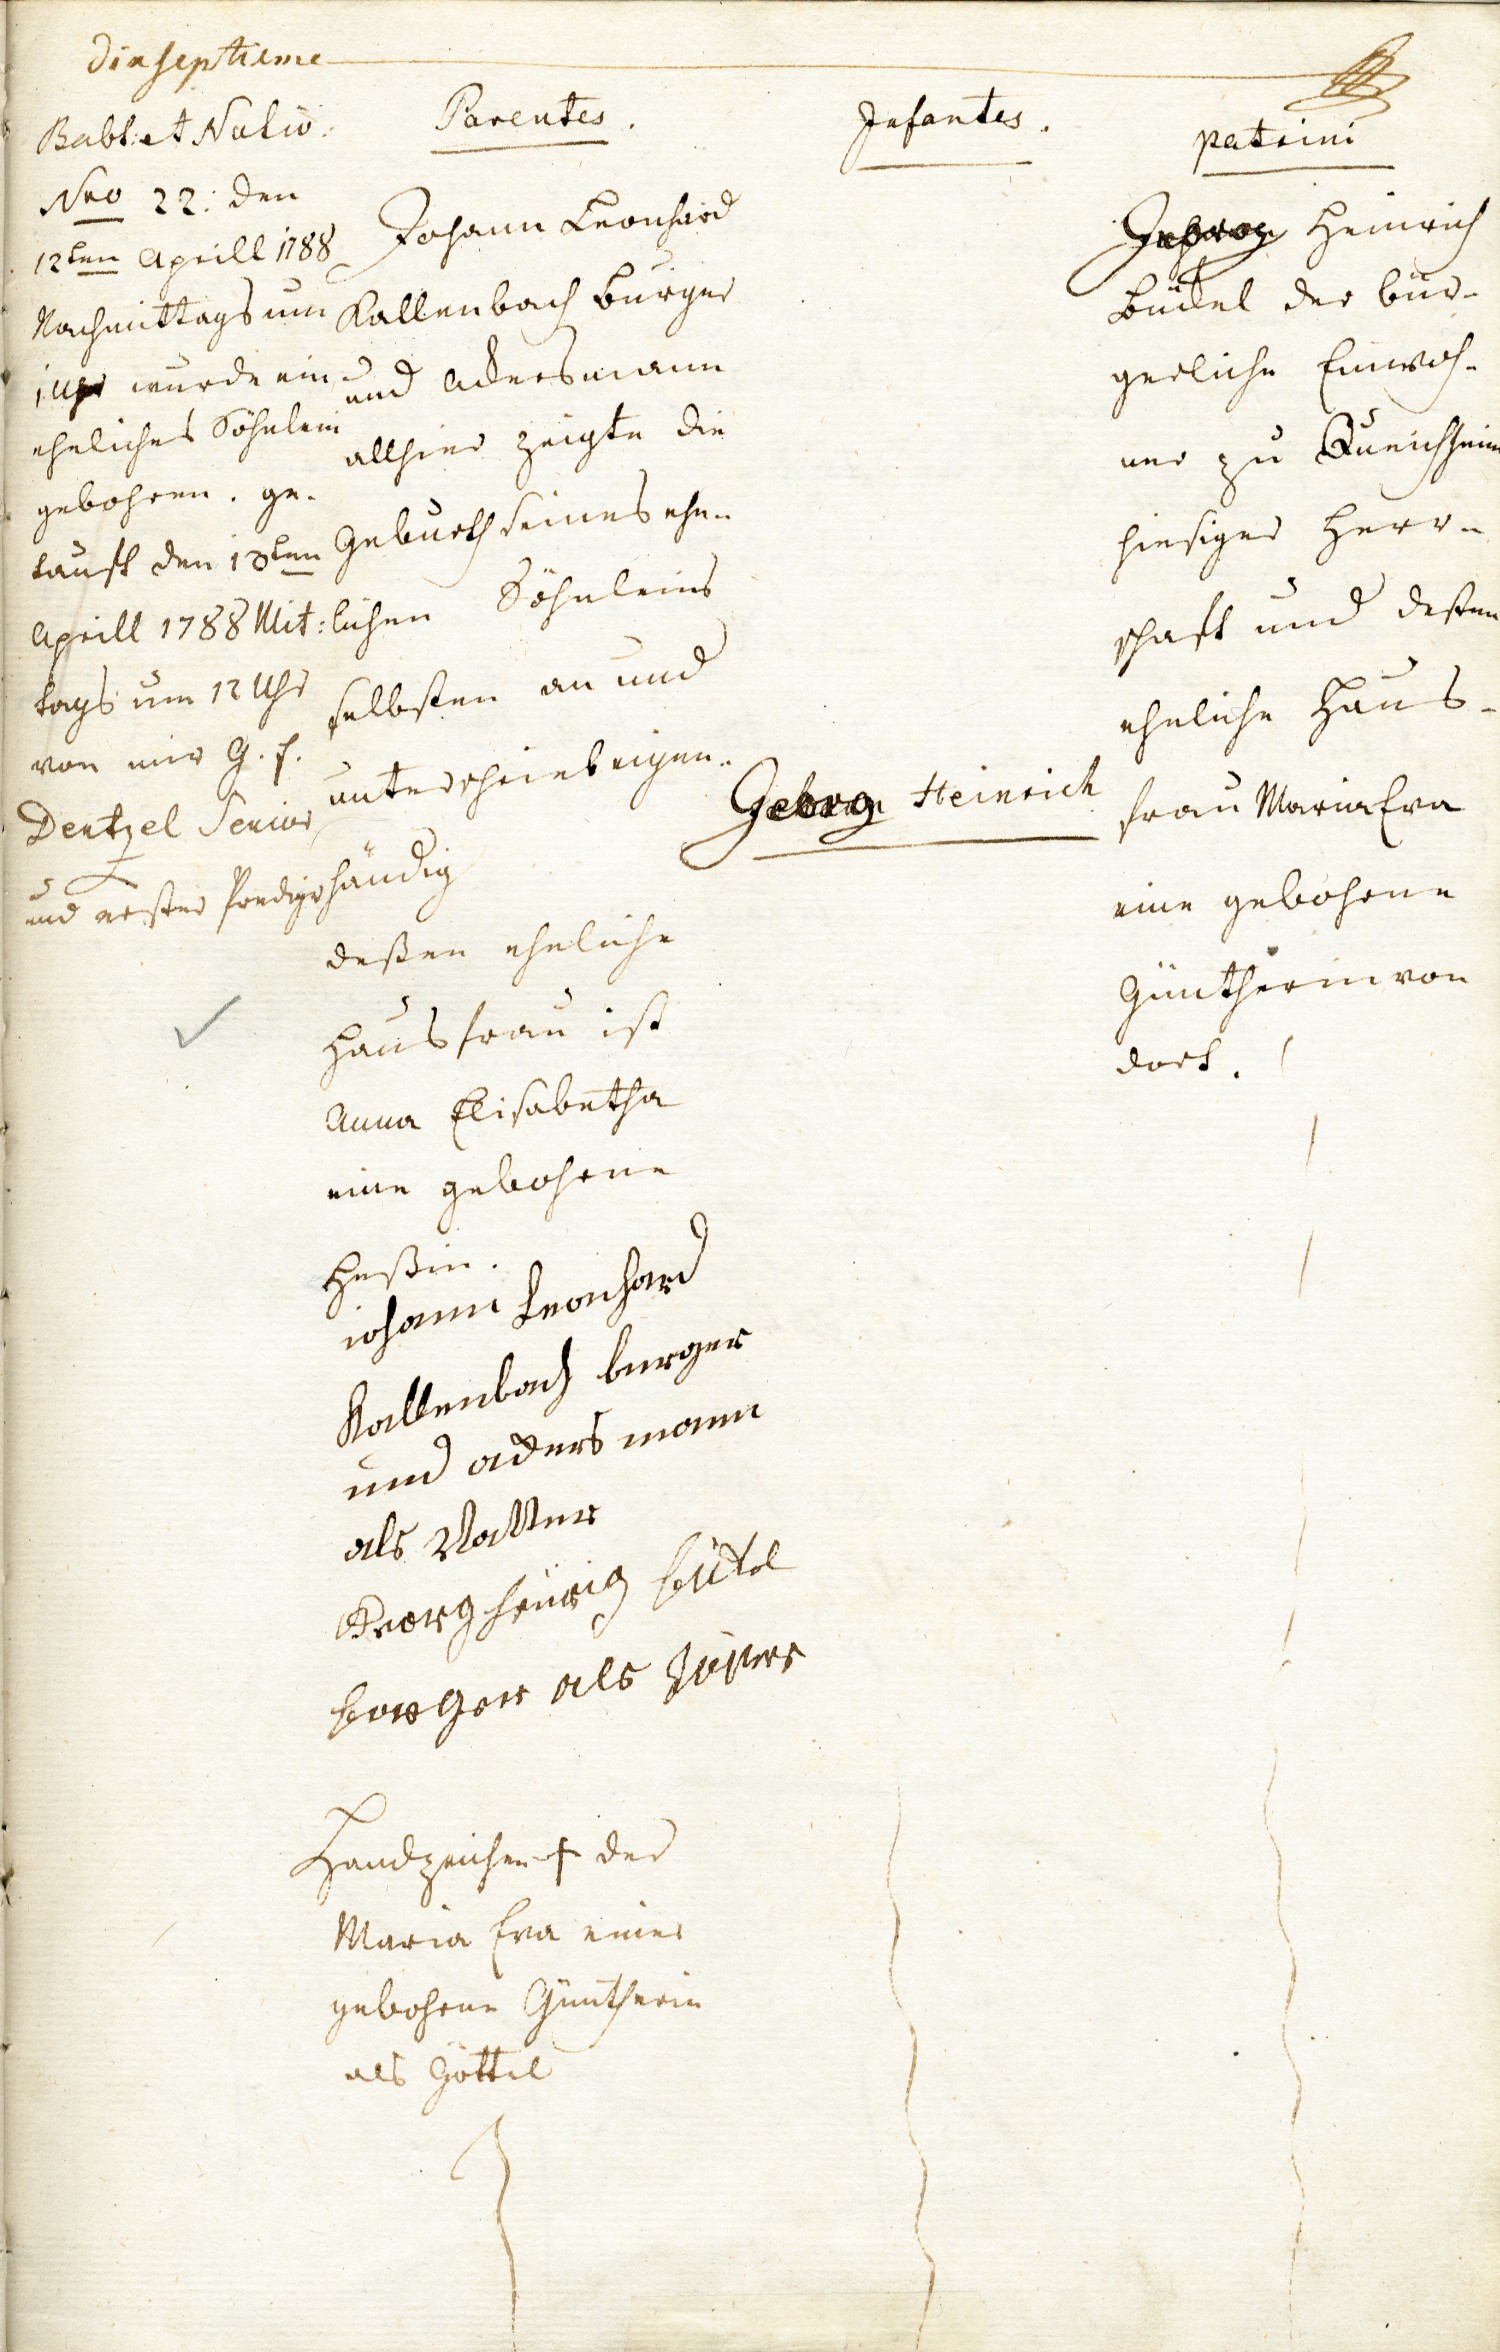 dixseptieme
Babt: et Nativ:
Nro 22: den
12ten Aprill 1788
Nachmittags um
1 Uhr wurde ein
eheliches Söhnlein
gebohren. ge-
tauft den 13ten
Aprill 1788 Mit-
tags um 12 Uhr
von mir G. F.
Dentzel Senior
und erster Prediger
Parentes.
Johann Leonhard
Kallenbach Burger
und Ackersmann
allhier zeigte die
Geburth seines ehe-
lichen Söhnleins
selbsten an und
unterschrieb eigen-
händig
deßen eheliche
Hausfrau ist
Anna Elisabetha
eine gebohrne
Heßin.
iohann Leonhard
Kallenbach burger
und ackers mann
als Vatter
Georg Heinrig Bückel
borger als
Handzeichen + der
Maria Eva einer
gebohrne Güntherin
als Göttel
Infantes.
Georg Heinrich
patrini
Georg Heinrich
Bückel der bür-
gerliche Einwoh-
ner zu Queichheim
hiesiger Herr-
schaft und deßen
eheliche Haus-
frau Maria Eva
eine gebohrne
Güntherin von
dort.